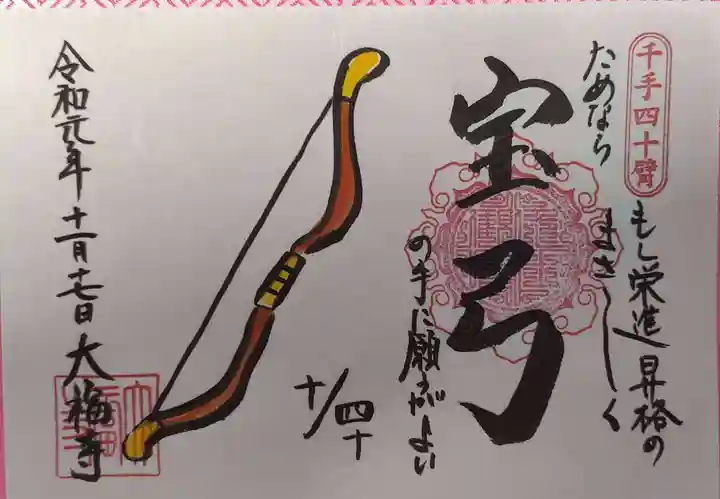 千手四十臂
もし栄進昇格の
ためなら
まさしく
宝弓
の手に願うがよい
十/四十
令和元年十一月十七日大梅寺